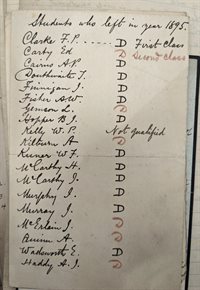 Students who left in year 1895.
Clarke F. P. ..... D First Class
Carty Ed. D Second Class
Cairns A P D
Douthwaite T. D
Finnigan J. D
Fisher A. W. D
Gemson L. D
Hopper B J. D
Kelly W. P. Not qualified
Kilburn A D
Keiner W F. D
McCarthy H. D
McCarthy J. D
Murphy J. D
Murray J. D
McErlain J. D
Quinn A. D
Wadsworth E. D
Haddy A. J. D